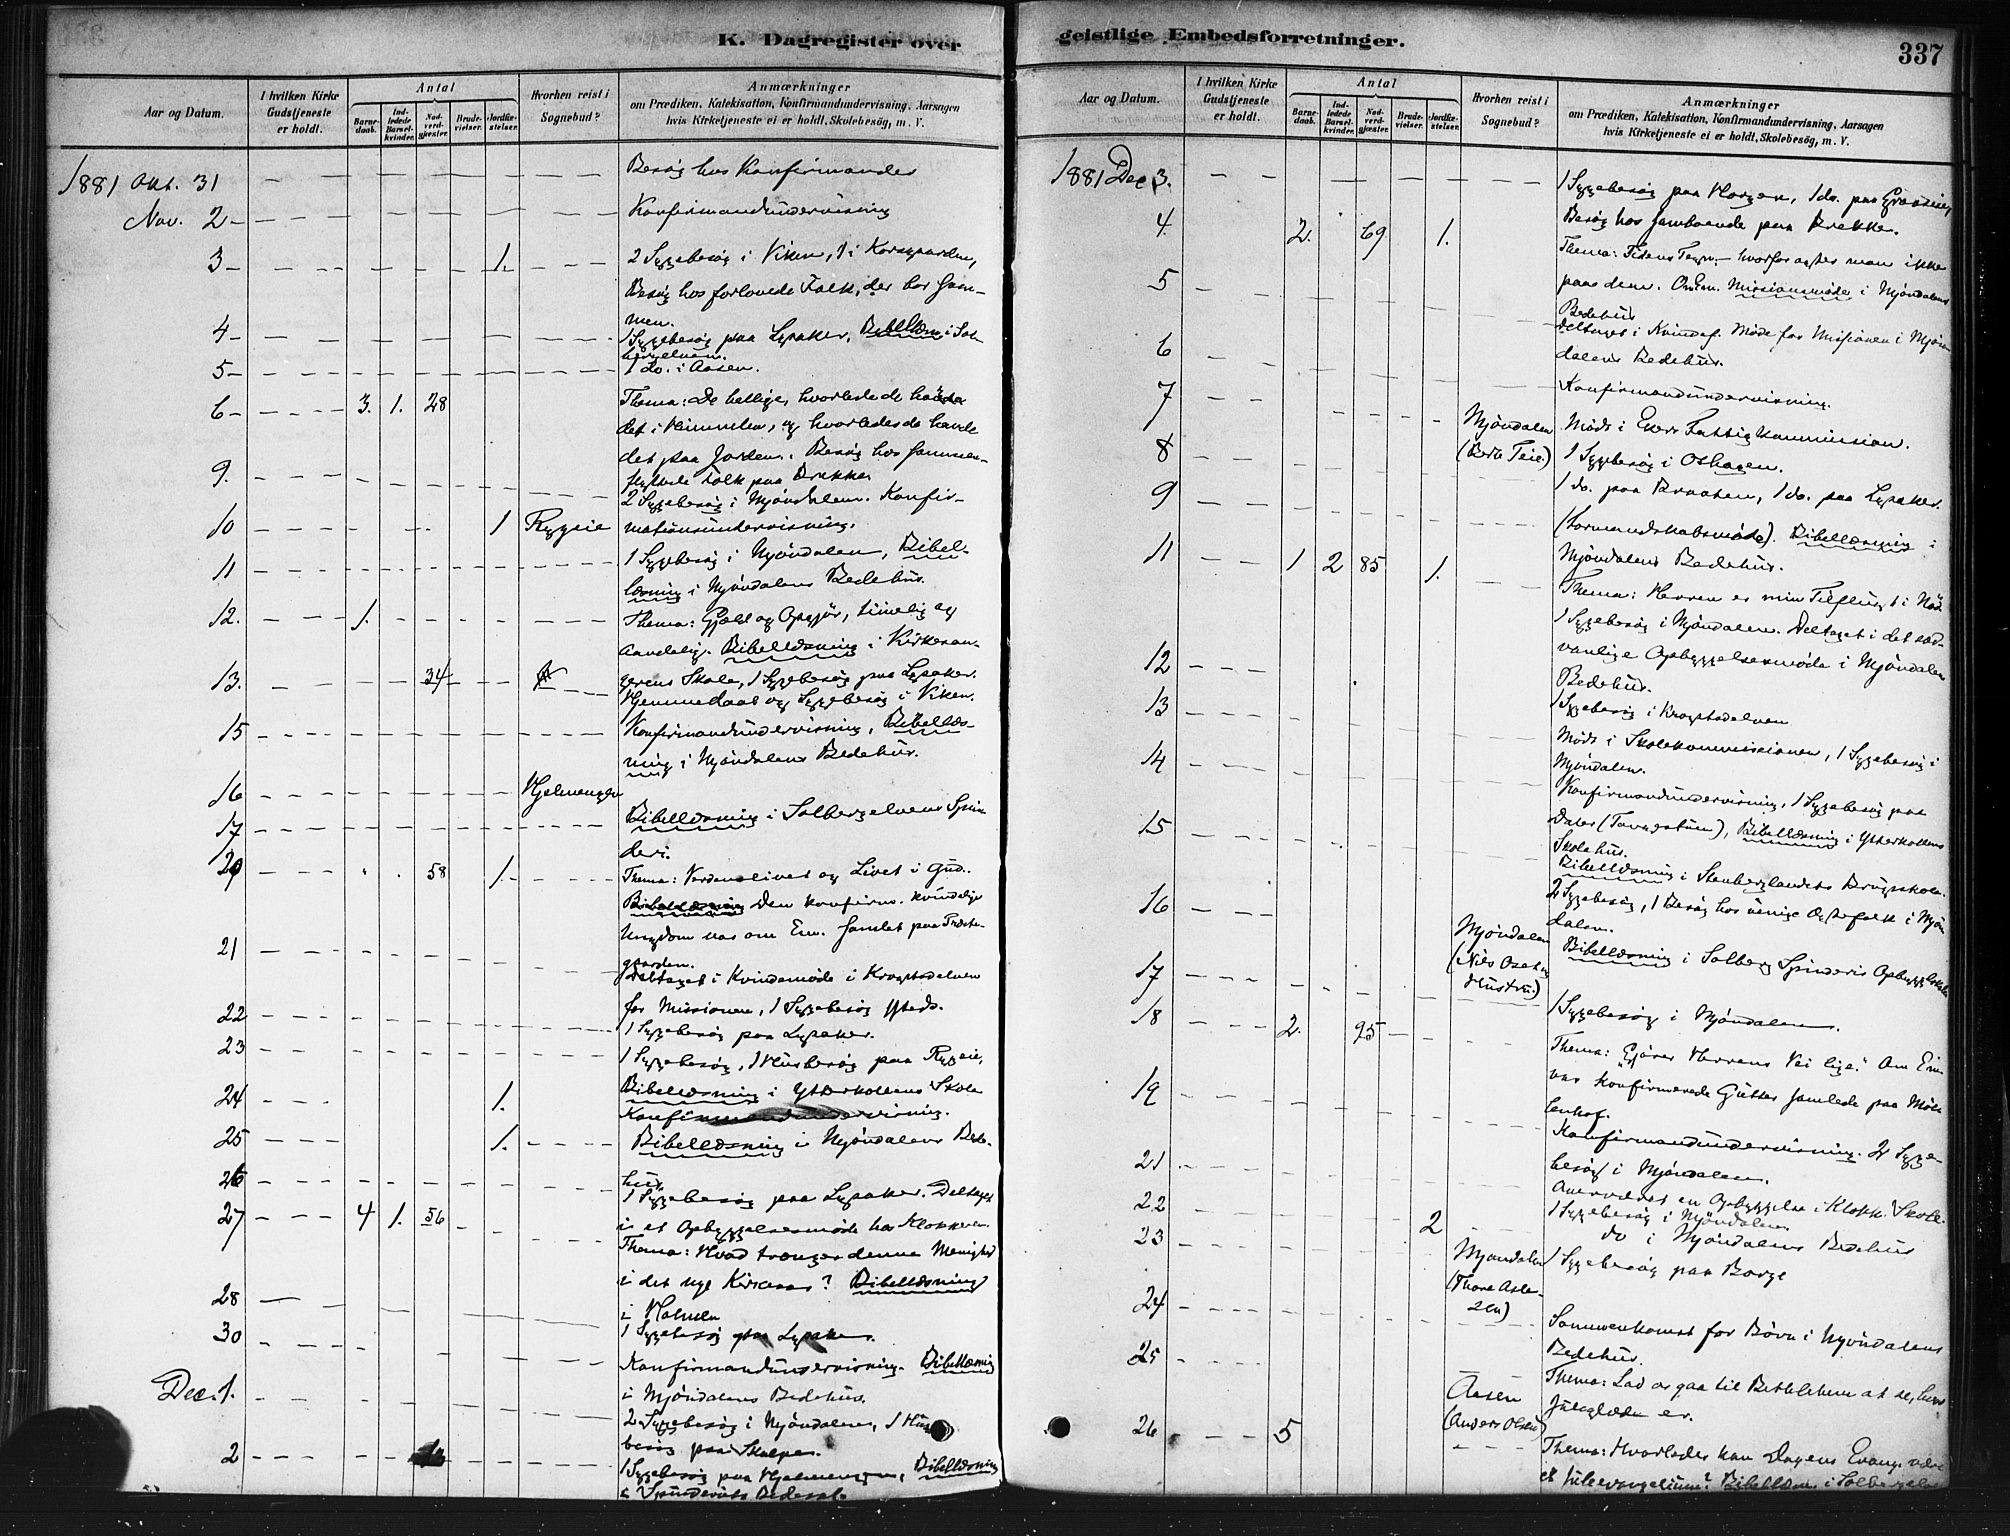 K. Dagregister over
Aar og Datum.
I hvilken Kirke Gudstjeneste er holdt.
Antal
Barnedaab.
Indledede Barselkvinder.
Nadverdgjæster.
Brudevielser.
Jordfæstelser.
Hvorhen reist i Sognebud?
Anmærkninger
om Prædiken, Katekisation, Konfirmandundervisning, Aarsagen
hvis Kirketjeneste ei er holdt, Skolebesøg, m. V.
1881 Okt. 31 Besøg hos Konfirmander
Nov. 2 Konfirmandundervisning
3 1. 2 Sygebesøg i Viken, 1 i Korsgaarden,
Besøg hos forlovede Folk, der bor sam-
men.
4 1 Sygebesøg paa Lysaker. Bibellæsn. i Sol-
bergelven.
5 1 do. i Aasen.
6 3. 1. 28 Thema: De hellige, hvorledes de
det i Himmelen, og hvorledes de havde
det paa Jorden. Besøg hos sammen-
flyttede Folk paa Brekke
9. 2 Sygebesøg i Mjøndalen. Konfir-
mationsundervisning.
10 1 Ryggeie
11 1 Sygebesøg i Mjøndalen, Bibel-
læsning i Mjøndalens Bedehus.
12. 1. Thema: Gjæld og Opgjør, timelig og
aandelig. Bibellæsning i Kirkesan-
13. 34 gerens Skole, 1 Sygebesøg paa Lysaker.
Hjemmedaab og Sygebesøg i Viken.
15 Konfirmandundervisning, Bibellæs-
ning i Mjøndalens Bedehus.
16 Hjelmengen
17 Bibellæsning i Solbergelvens Spin-
deri.
20 58 1. Thema: Verdenslivet og Livet i Gud.
Bibellæsning Den konfirm. kvindelige
Ungdom var om Em. samlet paa Præste-
gaarden.
21 Deltaget i Kvindemøde i Krogstadelven
for Missionen, 1 Sygebesøg ssteds.
22 1 Sygebesøg paa Lysaker.
23 1 Sygebesøg, 1 Husbesøg paa Ryggeie,
Bibellæsning i Ytterkollens Skole
24 1. Konfirmandundervisning.
25 1. Bibellæsning i Mjøndalens Bede-
hus.
26 1 Sygebesøg paa Lysaker. Deltaget
i et Opbyggelsesmøde hos Klokkeren.
27 4 1. 56 Thema: Hvad trænger denne Menighed
i det nye Kirkeaar? Bibellæsning
i Holmen
28 1 Sygebesøg paa Lysaker.
30 Konfirmandundervisning. Bibellæsning
i Mjøndalens Bedehus.
Dec. 1. 2 Sygebesøg i Mjøndalen, 1 Hus-
besøg paa Skalpen.
2 1 Sygebesøg paa Hjelmengen, Bibellæsning
i Spinderiets Bedesal.
geistlige Embedsforretninger.
337
Aar og Datum.
I hvilken Kirke Gudstjeneste er holdt.
Antal
Barnedaab.
Indledede Barselkvinder.
Nadverdgjæster.
Brudevielser.
Jordfæstelser.
Hvorhen reist i Sognebud?
Anmærkninger
om Prædiken, Katekisation, Konfirmandundervisning, Aarsagen
hvis Kirketjeneste ei er holdt, Skolebesøg, m. V.
1881 Dec. 3. 1 Sygebesøg paa Horgen, 1 do. paa
Besøg hos samboende paa Brekke.
4. 2. 69 1. Thema: Tidens Tegn, – hvorfor agter man ikke
paa dem. Om Em. Missionsmøde i Mjøndalens
Bedehus
5 Deltaget i Kvindef. Møde for Missionen i Mjøn-
dalens Bedehus.
6
7 Konfirmandundervisning.
Mjøndalen Møde i Ekers Fattigkommission.
8 (Berte Teie.) 1 Sygebesøg i Oshagen.
9 1 do. paa Braaten, 1 do. paa Lysaker
(Formandskabsmøde). Bibellæsning i
Mjøndalens Bedehus.
11 1 2 85 1. Thema: Herren er min Tilflugt i Nød.
1 Sygebesøg i Mjøndalen. Deltaget i det sæd-
vanlige Opbyggelsesmøde i Mjøndalens
Bedehus.
12 1 Sygebesøg i Krogstadelven
13 Møde i Skolekommissionen, 1 Sygebesøg i
Mjøndalen.
14 Konfirmandundervisning, 1 Sygebesøg paa
Daler, Bibellæsning i Ytterkollens
Skolehus.
15 Bibellæsning i Stenberglandets Brugsskole.
2 Sygebesøg, 1 Besøg hos uenige Ægtefolk i Mjøn-
dalen.
16 Bibellæsning i Solberg Spinderis Opbyggelseslokale
Mjøndalen
(Nils Oset og
Hustru)
17 1 Sygebesøg i Mjøndalen.
18 2. 95 Thema: "Gjører Herrens Vei lige." Om Em.
var konfirmerede Gutter samlede paa Møl-
lenhof.
19 Konfirmandundervisning. 2 Syge-
besøg i Mjøndalen.
21 Overværet en Opbyggelse i Klokk. Skole.
22 2 1 Sygebesøg i Mjøndalen.
do i Mjøndalens Bedehus
23 Mjøndalen 1 Sygebesøg paa Borge
(Thore Asle-
sen)
24 Sammenkomst for Børn i Mjøndalens
Bedehus.
25 Thema: Lad os gaa til Bethlehem at se, hvor
Juleglæde er.
Aasen
(Anders Olsen)
26 5 Thema: Hvorledes kan Dagens Evang. være
et Juleevangelium? Bibellæsn. i Solbergelven